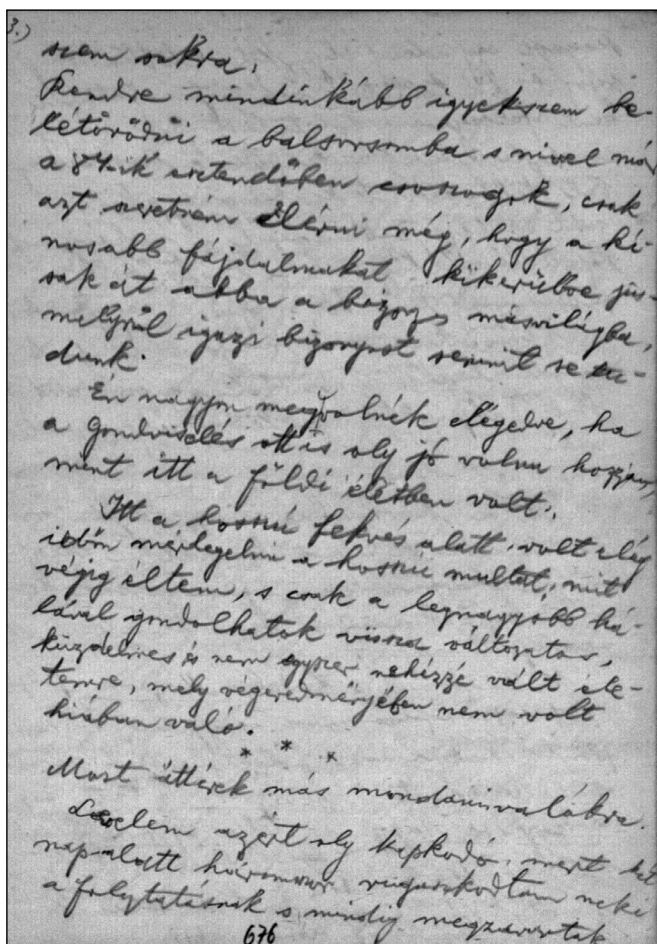 3.)
szem sokra.
Kendre mindinkább igyekszem be-
létörődni a balsorsomba s mivel már
a 84-ik esztendőben csoszogok, csak
azt szeretném elérni még, hogy a kí-
nosabb fájdalmakat kikerülve jus-
sak át abba a bizonyos másvilágba,
melyről igazi bizonyost semmit se tu-
dunk.
Én nagyon megvolnék elégedve, ha
a gondviselés ott is oly jó volna hozzám,
mint itt a földi életben volt.
Itt a hosszú fekvés alatt volt elég
időm mérlegelni a hosszu multat, mit
végig éltem, s csak a legnagyobb há-
lával gondolhatok vissza változatos,
küzdelmes és nem egyszer nehézzé vált éle-
temre, mely végeredményében nem volt
hiában való.
* * *
Most áttérek más mondanivalókra.
Levelem azért oly kapkodó, mert két
nap alatt háromszor rugaszkodtam neki
a folytatásnak s mindig megzavartak
676